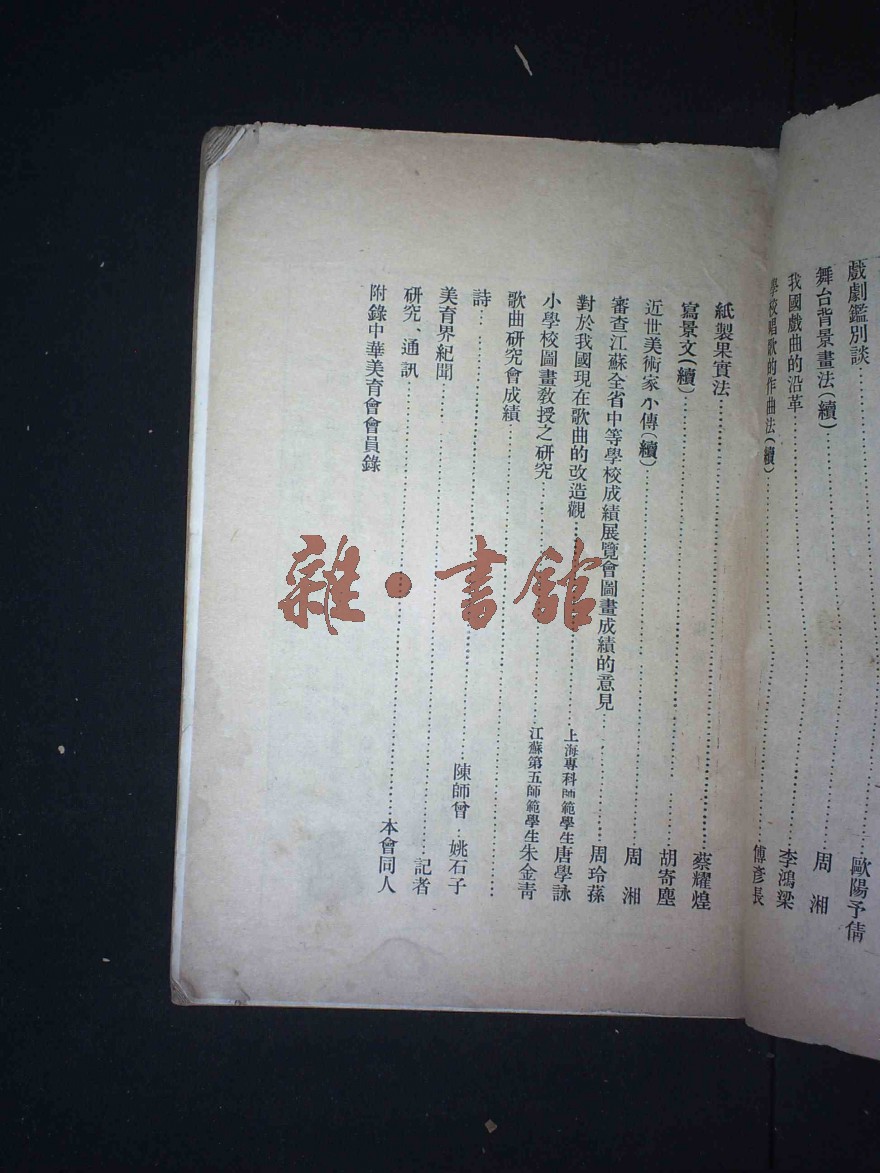 戲劇鑑別談……歐陽予倩
舞台背景畫法(續)……周湘
我國戲曲的沿革……李鴻梁
學校唱歌的作曲法(續)……傅彥長
紙製果實法……蔡耀煌
寫景文(續)……胡寄塵
近世美術家小傳(續)……周湘
審查江蘇全省中等學校成績展覽會圖畫成績的意見……周玲蓀
對於我國現在歌曲的改造觀……上海專科師範學生唐學詠
小學校圖畫教授之研究……江蘇第五師範學生朱金青
歌曲研究會成績……
詩……陳師曾 姚石子
美育界紀聞……記者
研究、通訊……本會同人
附錄中華美育會會員錄
雜·書館